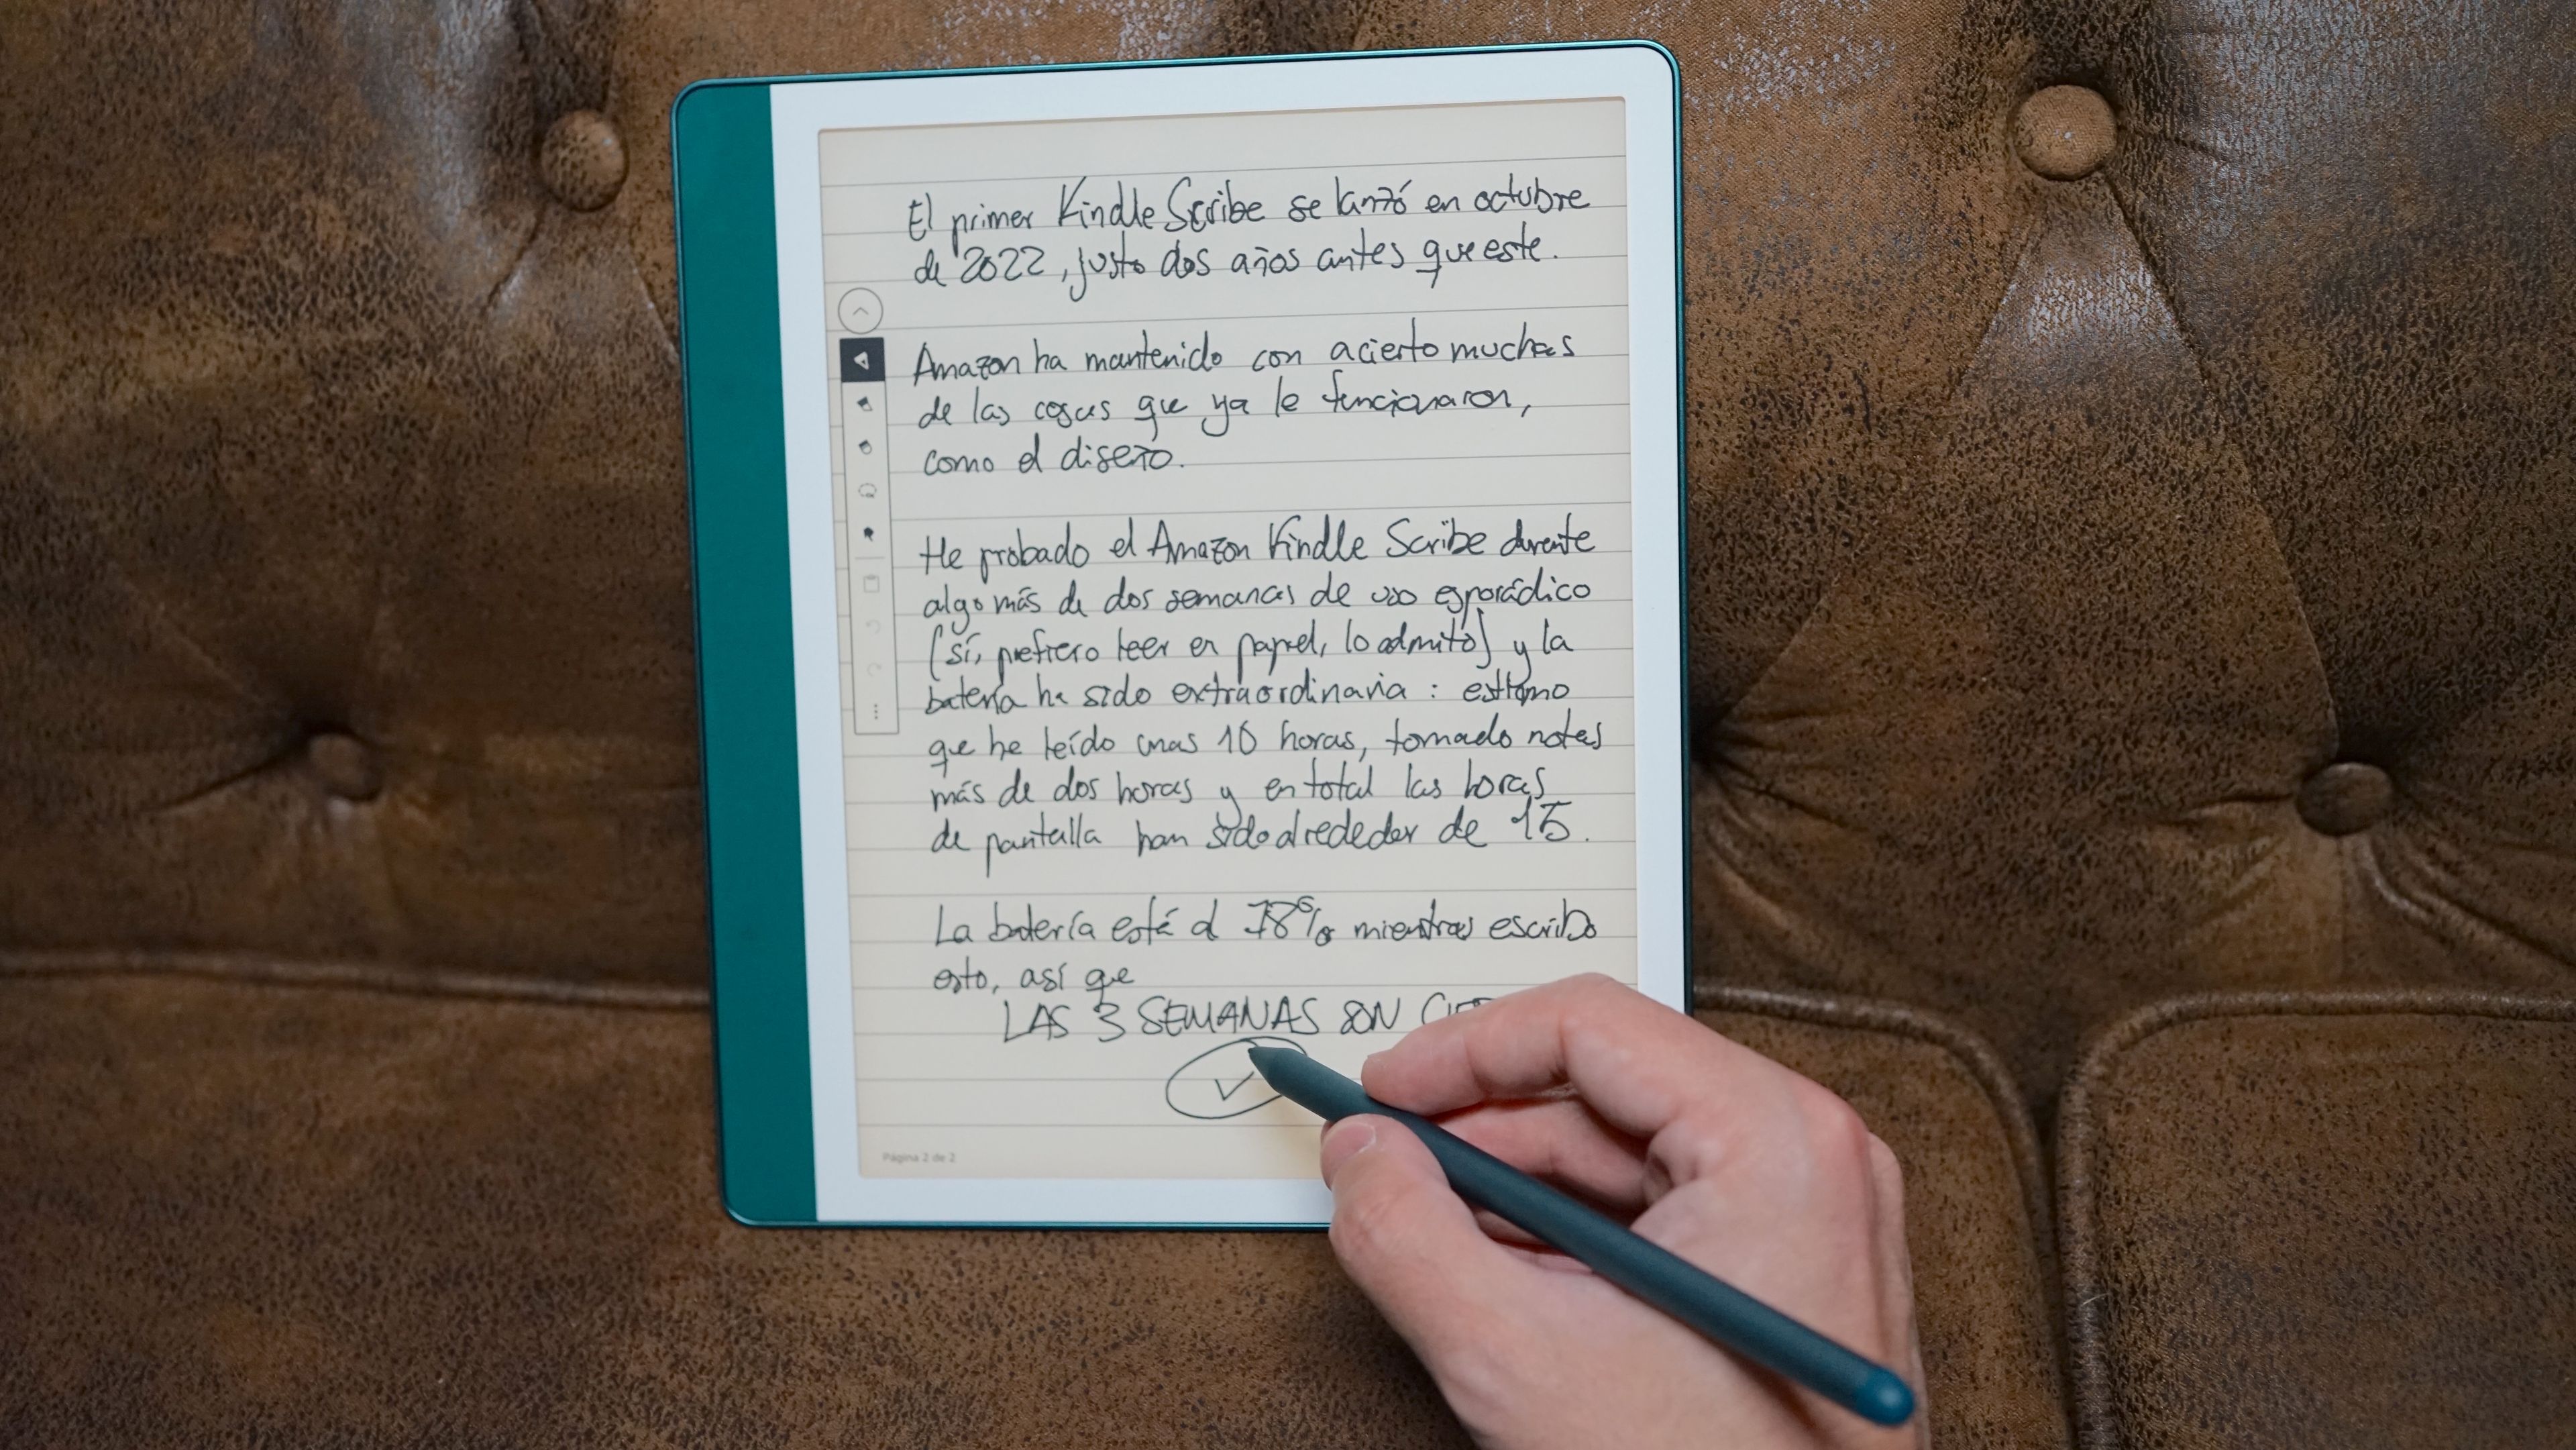 El primer Kindle Scribe se lanzó en octubre
de 2022, justo dos años antes que este.
Amazon ha mantenido con acierto muchas
de las cosas que ya le funcionaron,
como el diseño.
He probado el Amazon Kindle Scribe durante
algo más de dos semanas de uso esporádico
(sí, prefiero leer en papel, lo admito) y la
batería ha sido extraordinaria: estimo
que he leído unas 10 horas, tomado notas
más de dos horas y en total las horas
de pantalla han sido alrededor de 15.
La batería está al 78% mientras escribo
esto, así que
LAS 3 SEMANAS SON
Página 2 de 2